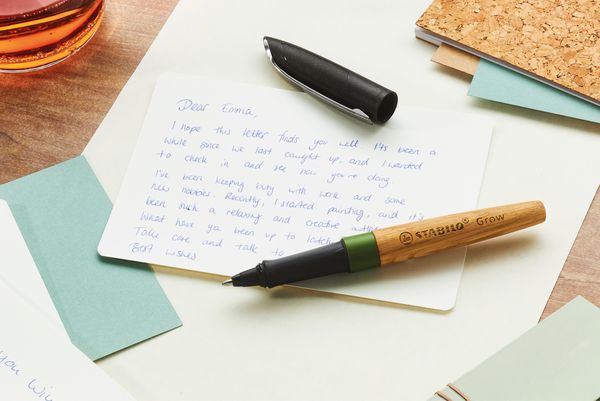 Dear Emma,
I hope this letter finds you well. It's been a
while since we last caught up, and I wanted
to check in and see how you're doing.
I've been keeping busy with work and some
new hobbies. Recently, I started painting, and it's
been such a relaxing and creative outlet
What have ya been up to lately
Take care and talk to
Best wishes
STABILO® Grow
you